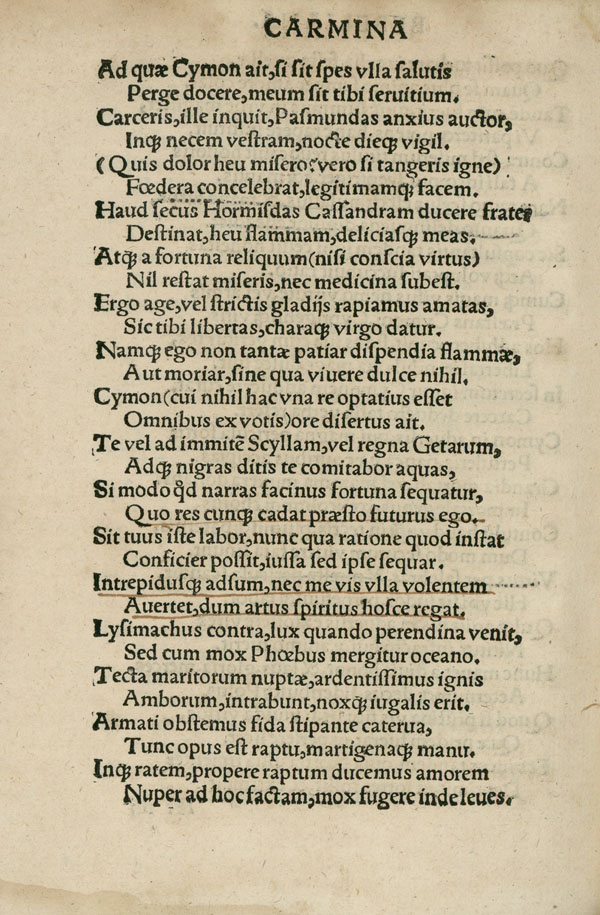 CARMINA
Ad quæ Cymon ait,ſi ſit ſpes vlla ſalutis
Perge docere,meum ſit tibi ſeruitium.
Carceris,ille inquit,Paſmundas anxius auctor,
Inqꝫ necem veſtram,nocte dieqꝫ vigil.
(Quis dolor heu miſero?vero ſi tangeris igne)
Fœdera concelebrat,legitimamqꝫ facem.
Haud ſecus Hormiſdas Caſſandram ducere frater
Deſtinat,heu flammam,deliciaſqꝫ meas.
Atqꝫ a fortuna reliquum(niſi conſcia virtus)
Nil reſtat miſeris,nec medicina ſubeſt.
Ergo age,vel ſtrictis gladijs rapiamus amatas,
Sic tibi libertas,charaqꝫ virgo datur.
Namqꝫ ego non tantæ patiar diſpendia flammæ,
Aut moriar,ſine qua viuere dulce nihil.
Cymon(cui nihil hac vna re optatius eſſet
Omnibus ex votis)ore diſertus ait.
Te vel ad immitē Scyllam,vel regna Getarum,
Adqꝫ nigras ditis te comitabor aquas,
Si modo qd̓ narras facinus fortuna ſequatur,
Quo res cunqꝫ cadat præſto futurus ego.
Sit tuus iſte labor,nunc qua ratione quod inſtat
Conficier poſſit,iuſſa ſed ipſe ſequar.
Intrepiduſqꝫ adſum,nec me vis vlla volentem
Auertet,dum artus ſpiritus hoſce regat.
Lyſimachus contra,lux quando perendina venit,
Sed cum mox Phœbus mergitur oceano.
Tecta maritorum nuptæ,ardentiſſimus ignis
Amborum,intrabunt,noxqꝫ iugalis erit.
Armati obſtemus fida ſtipante caterua,
Tunc opus eſt raptu,martigenaqꝫ manu.
Inqꝫ ratem,propere raptum ducemus amorem
Nuper ad hoc factam,mox fugere inde leues.